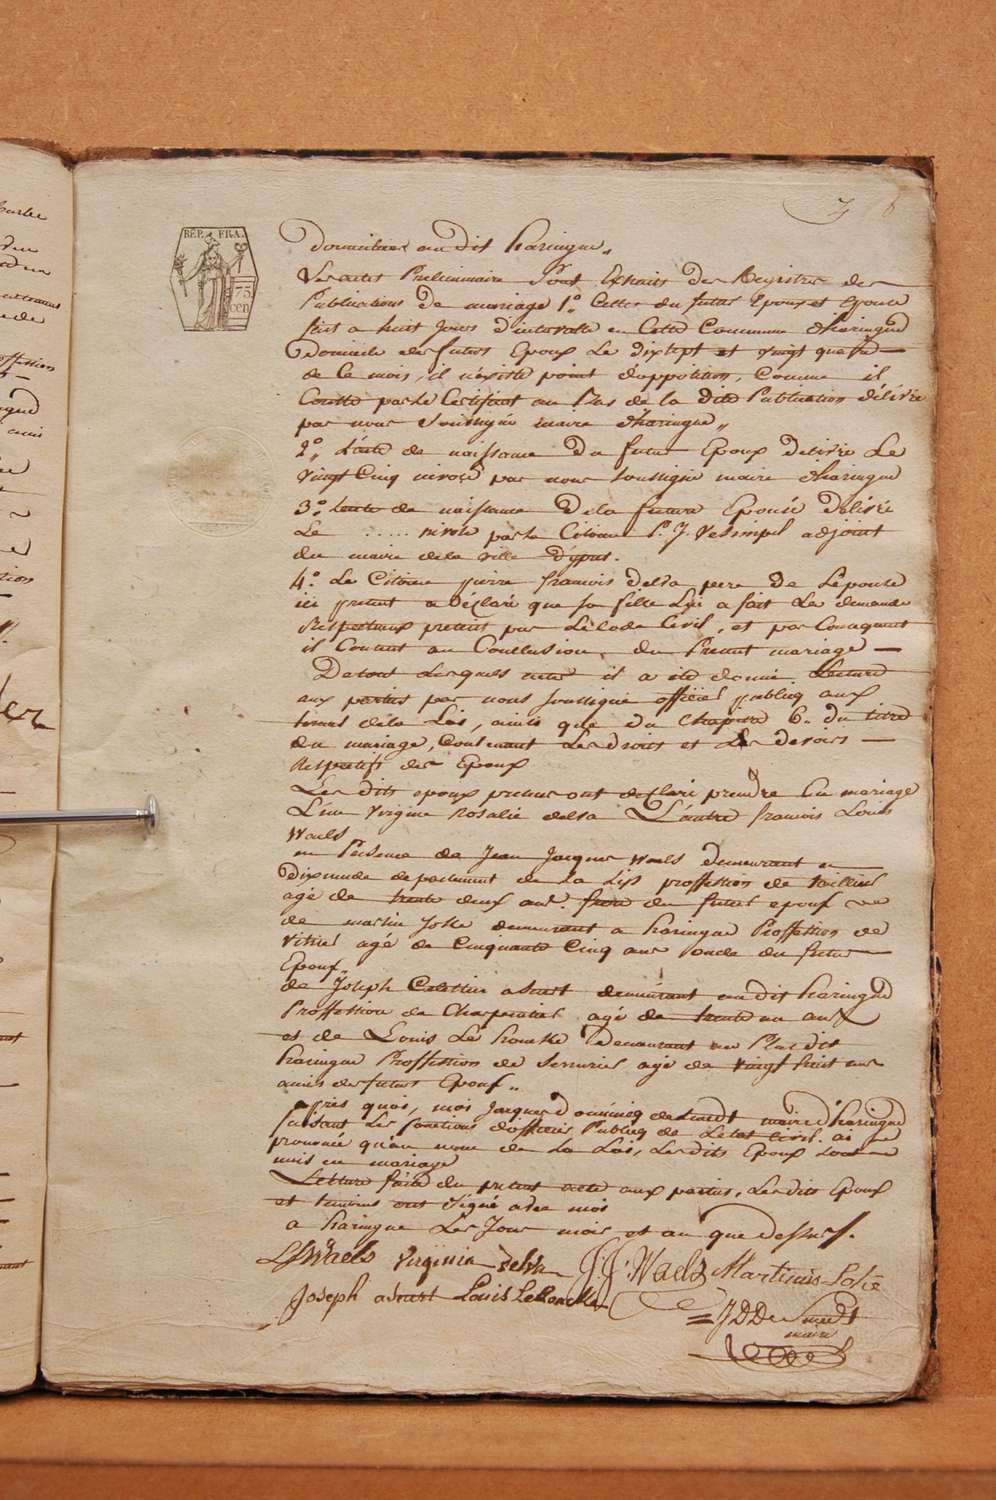 7 6
RÉP. FRA.
75
cen
Domiciliees au dit haringue„
Les actes Preliminaire Sont Extraits des Registres des
Publications de mariage 1.° Celles du futur Epoux et Epouse
fait a huit Jours d'intervale en Cette Commune d'haringue
Domicile des futurs Epoux Le dixsept et vingt quatre —
de Ce mois, il n'existe point d'oppotition, Comme il
Conste par le Certificat au Bas de la dite Publication délivré
par nous Soussigné maire d'haringue„
2.° L'acte de naissance du futur Epoux delivré Le
vingt Cinq nivose par nous Soussigné maire d'haringue
3.° L'acte de naissance de la future Epouse délivré
Le ..... nivose par le Citoien P. J. adjoint
du maire de la ville d'ypres.
4.° Le Citoien pierre francois delva pere de L'epouse
ici present a Déclaré que sa fille Lui a fait La demande
Respectueux prescrit par Le Code Civil, et par Consequent
il Consent au Conclusion du Present mariage —
De tout Lesquels actes il a été donné Lecture
aux parties par nous soussigné officier publiq aux
termes de la Loi, ainsi que du Chapitre 6. du titre
du mariage, Contenant Les droits et Les devoirs —
Respectifs des Epoux
Les dits epoux presens ont declaré prendre En mariage
L'un virginie Rosalie delva L'autre francois Louis
Waels
en Presence de Jean Jacques Waels demeurant en
Dixmude departement de La Liss proffession de tailleur
agé de trente deux ans. frere du futur epoux
de martin Joste demeurant a haringue Proffession de
vitrier agé de Cinquante Cinq ans oncle du futur —
Epoux„
de Joseph Celestin demeurant au dit haringue
Proffession de Charpentier agé de trente un ans
et de Louis Le demeurant au Plat dit
haringue Proffession de Serrurier agé de vingt huit ans
amis des futurs Epoux„
apres quoi, moi Jacques Dominiq de Smedt maire d'haringue
faisant Les fonctions d'officier Publiq de L'etat Civil. ai
prononcé qu'au nom de La Loi, Les dits Epoux sont
unis en mariage
Lecture faite du present acte aux parties, Les dits Epoux
et temoins ont Signé avec moi
a haringue Les Jour mois et an que dessus /.
Waels virginia delva J: J: Waels Martinus Joste
Joseph Louis
J D De Smedt
maire